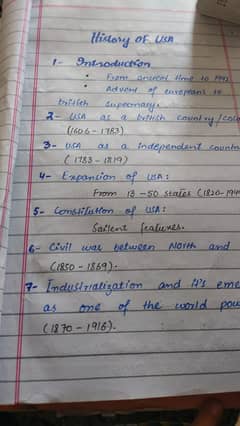 History of USA
1- Introduction
• From ancient time to 1492
• Advent of europeans to
british supremacy.
2- USA as a british country/colo
(1606 - 1783)
3- USA as a independent countr
(1783 - 1819)
4- Expansion of USA:
From 13-50 states (1820-194
5- Constitution of USA:
Salient features.
6- Civil war between North and
(1850 - 1869).
7- Industrialization and it's eme
as one of the world pow
(1870 - 1916).